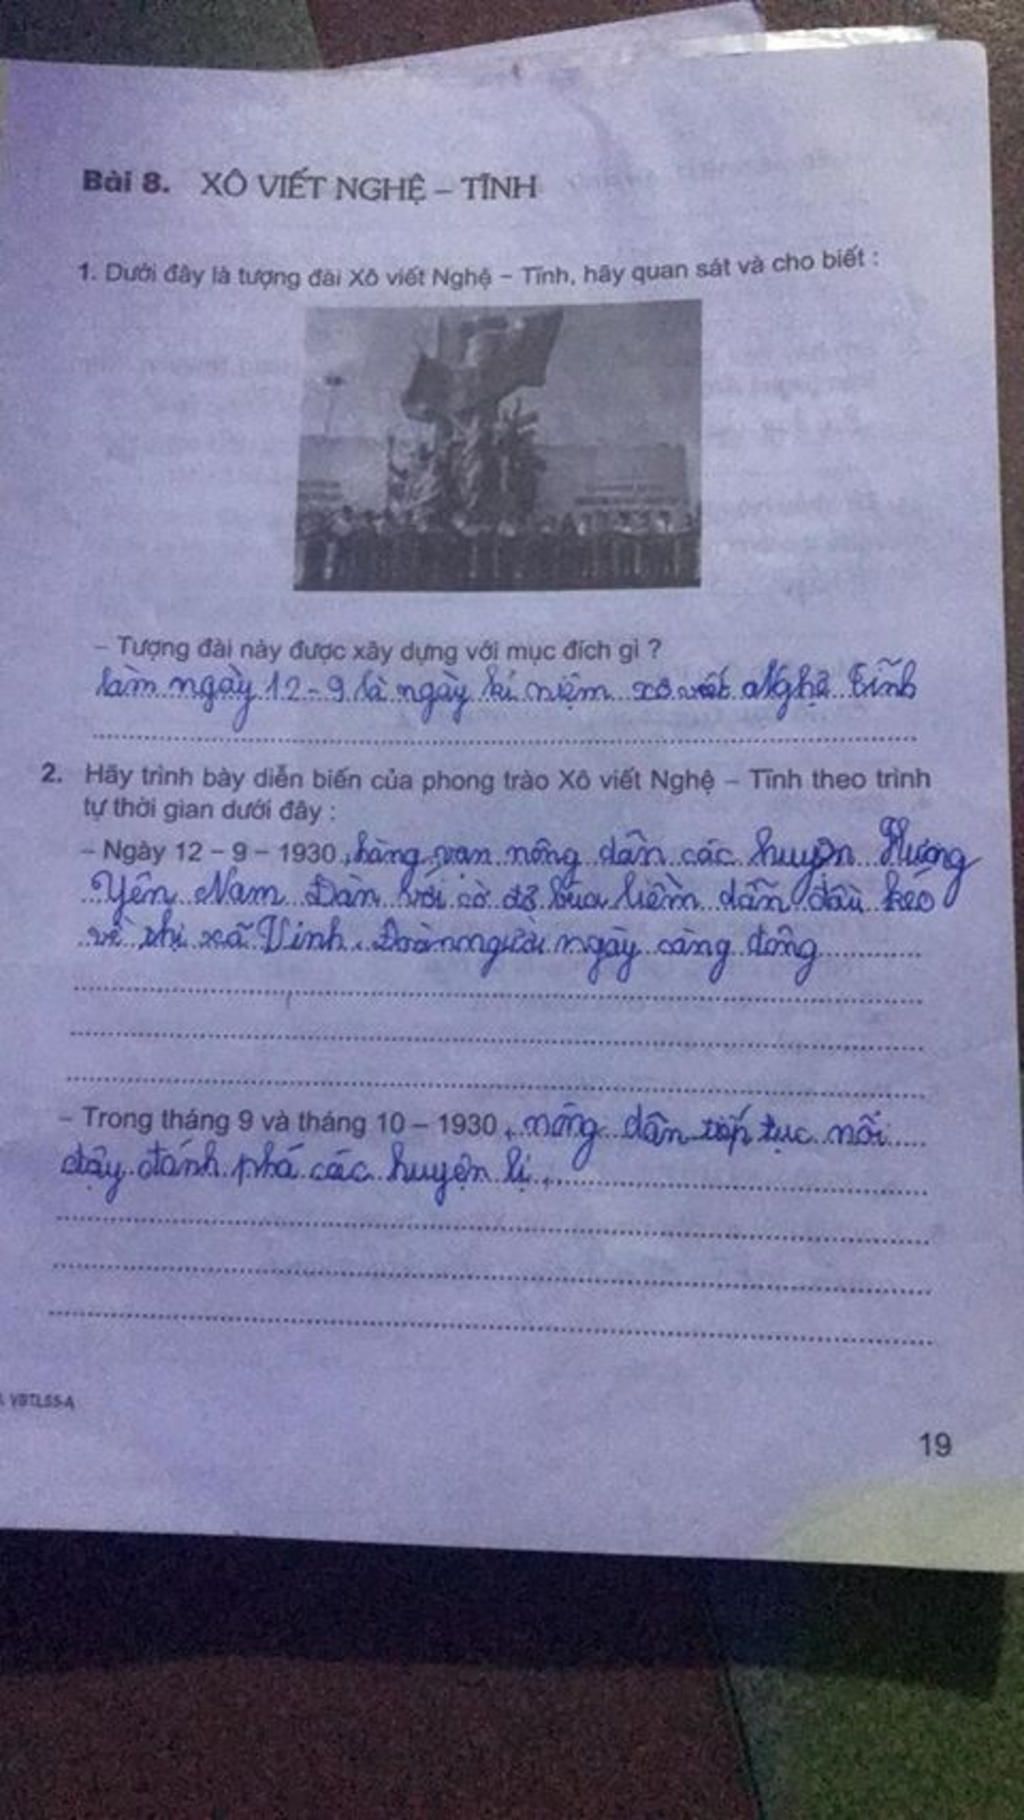 Bài 8. XÔ VIẾT NGHỆ – TĨNH
1. Dưới đây là tượng đài Xô viết Nghệ – Tĩnh, hãy quan sát và cho biết :
– Tượng đài này được xây dựng với mục đích gì ?
làm ngày 12-9 là ngày kỉ niệm xô viết Nghệ Tĩnh
2. Hãy trình bày diễn biến của phong trào Xô viết Nghệ – Tĩnh theo trình
tự thời gian dưới đây :
– Ngày 12 – 9 – 1930, hàng vạn nông dân các huyện Hưng
Yên Nam Đàn với cờ đỏ búa liềm dẫn đầu kéo
về thị xã Vinh. Đoàn người ngày càng đông
– Trong tháng 9 và tháng 10 – 1930, nông dân tiếp tục nổi
dậy đánh phá các huyện lị.
VBTLS5-A
19